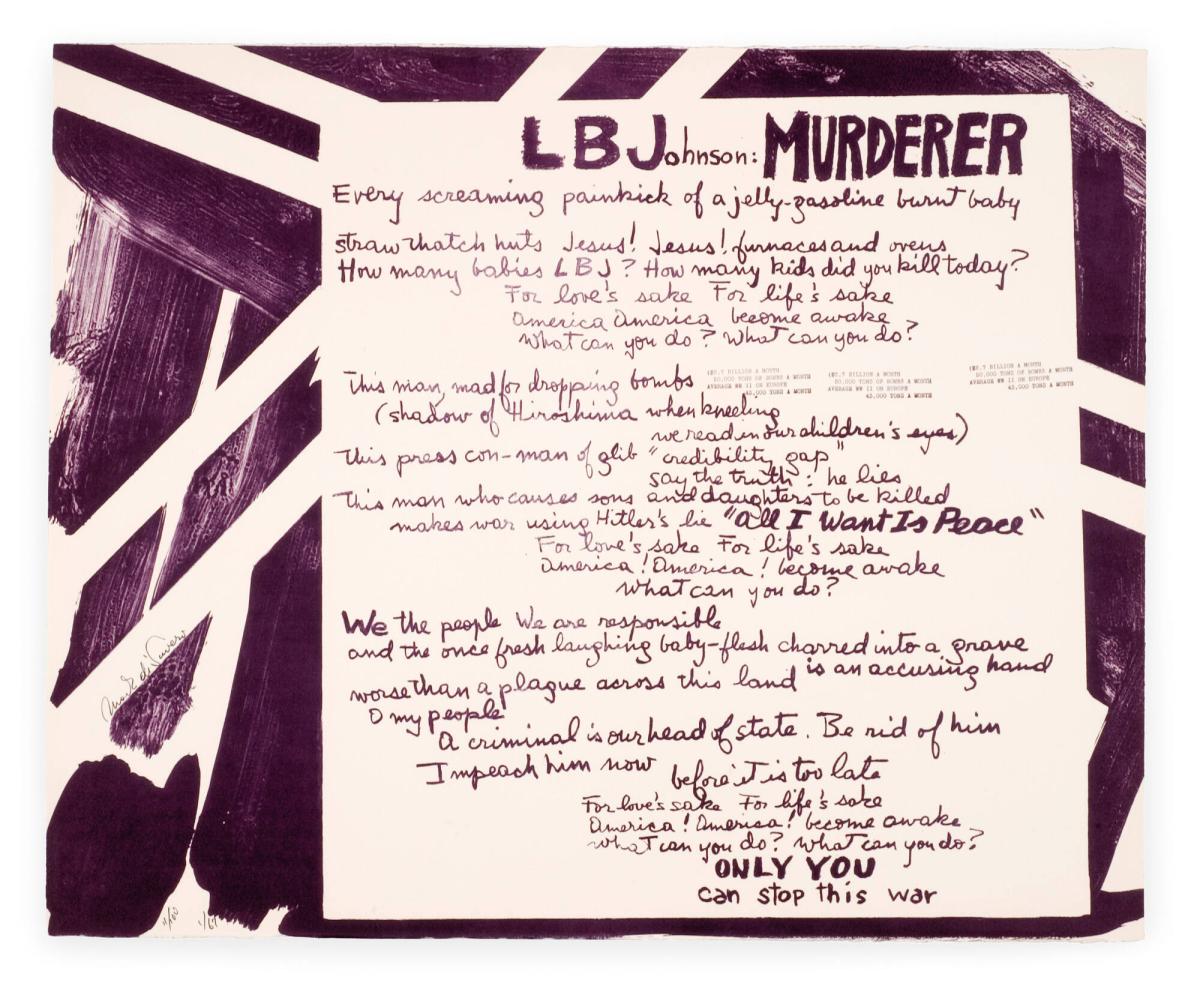 LBJohnson: MURDERER
Every screaming painkick of a jelly-gasoline burnt baby
straw thatch huts Jesus! Jesus! furnaces and ovens
How many babies LBJ? How many kids did you kill today?
For love's sake For life's sake
America America become awake
What can you do? What can you do?
This man, mad for dropping bombs
($2.7 BILLION A MONTH
50,000 TONS OF BOMBS A MONTH
AVERAGE WW II ON EUROPE
45,000 TONS A MONTH
($2.7 BILLION A MONTH
50,000 TONS OF BOMBS A MONTH
AVERAGE WW II ON EUROPE
45,000 TONS A MONTH
($2.7 BILLION A MONTH
50,000 TONS OF BOMBS A MONTH
AVERAGE WW II ON EUROPE
45,000 TONS A MONTH
(shadow of Hiroshima when kneeling
we read in our children's eyes)
This press con-man of glib "credibility gap"
say the truth: he lies
This man who causes sons and daughters to be killed
makes war using Hitler's lie "All I Want Is Peace"
For love's sake For life's sake
America! America! become awake
What can you do?
We the people We are responsible
and the once fresh laughing baby-flesh charred into a grave
is an accusing hand
worse than a plague across this land
O my people
A criminal is our head of state. Be rid of him
Impeach him now before it is too late
For love's sake For life's sake
America! America! become awake
What can you do? What can you do?
ONLY YOU
can stop this war
Mark di Suvero